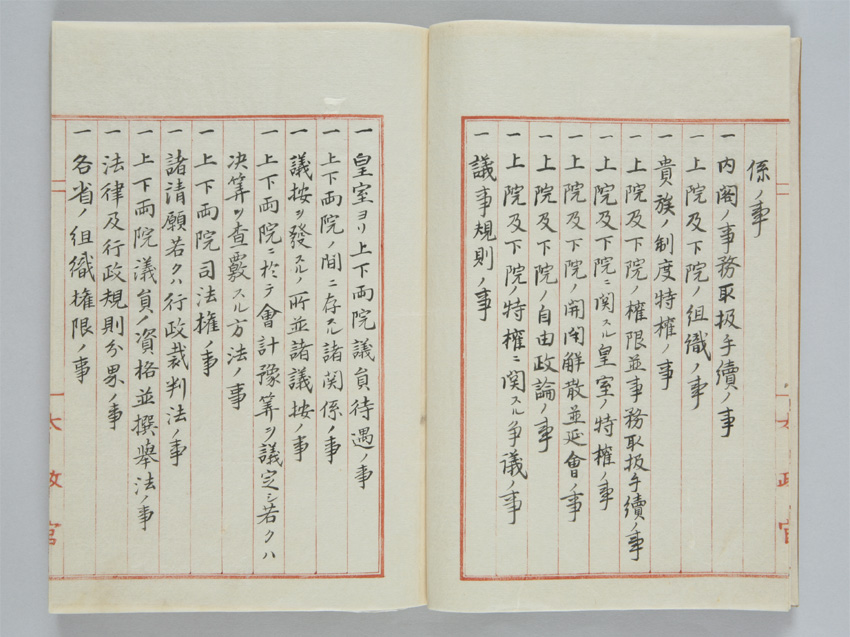 係ノ事
一内閣ノ事務取扱手續ノ事
一上院及下院ノ組織ノ事
一貴族ノ制度特権ノ事
一上院及下院ノ権限並事務取扱手續ノ事
一上院及下院ニ関スル皇室ノ特権ノ事
一上院及下院ノ開閉解散並延會ノ事
一上院及下院ノ自由政論ノ事
一上院及下院ノ特権ニ関スル争議ノ事
一議事規則ノ事
一皇室ヨリ上下両院議員待遇ノ事
一上下両院ノ間ニ存スル諸関係ノ事
一議按ヲ發スルノ所並諸議按ノ事
一上下両院ニ於テ會計豫筭ヲ議定シ若クハ
決筭ヲ査覈スル方法ノ事
一上下両院司法権ノ事
一諸請願若クハ行政裁判法ノ事
一上下両院議員ノ資格並撰擧法ノ事
一法律及行政規則分界ノ事
一各省ノ組織権限ノ事
太政官